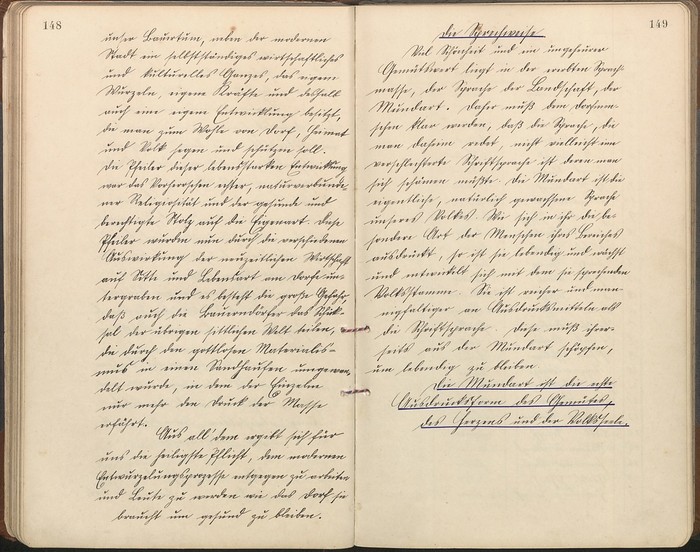 148
unser Bauerntum, neben der modernen
Stadt ein selbstständiges wirtschaftliches
und kulturelles Ganzes, das eigene
Wurzeln, eigene Kräfte und deshalb
auch eine eigene Entwicklung besitzt,
die man zum Wohle von Dorf, Heimat
und Volk hegen und schützen soll.
Die Pfeiler dieser lebensstarken Entwicklung
war das Vorherrschen echter, naturverbunde-
ner Religiosität und der gesunde und
berechtigte Stolz auf die Eigenart. Diese
Pfeiler wurden nun durch die verschiedenen
Auswirkung der neuzeitlichen Wirtschaft
auf Sitte und Lebensart am Dorfe un-
tergraben und es besteht die große Gefahr,
daß auch die Bauerndörfer das Schick-
sal der übrigen sittlichen Welt teilen,
die durch den gottlosen Materialis-
mus in einen Sandhaufen umgewan-
delt wurde, in dem der Einzelne
nur mehr den Druck der Masse
erfährt.
Aus all' dem ergibt sich für
uns die heiligste Pflicht, dem modernen
Entwurzelungsprozesse entgegen zu arbeiten
und Leute zu werden wie das Dorf sie
braucht um gesund zu bleiben.
149
Die Sprechweise
Viel Schönheit und ein ungeheurer
Gemütswert liegt in der ererbten Sprach-
masse, der Sprache der Landschaft, der
Mundart. Daher muß dem Dorfmen-
schen klar werden, daß die Sprache, die
man daheim redet, nicht vielleicht eine
verschlechterte Schriftsprache ist deren man
sich schämen müßte. Die Mundart ist die
eigentliche, natürlich gewachsene Sprache
unseres Volkes. Wie sich in ihr die be-
sondere Art der Menschen ihres Bereiches
ausdrückt, so ist sie lebendig und wächst
und entwickelt sich mit dem sie sprechenden
Volksstamme. Sie ist reicher und man-
nigfaltiger an Ausdrucksmitteln als
die Schriftsprache. Diese muß ihrer-
seits aus der Mundart schöpfen,
um lebendig zu bleiben.
Die Mundart ist die erste
Ausdrucksform des Gemütes,
des Herzens und der Volksseele.